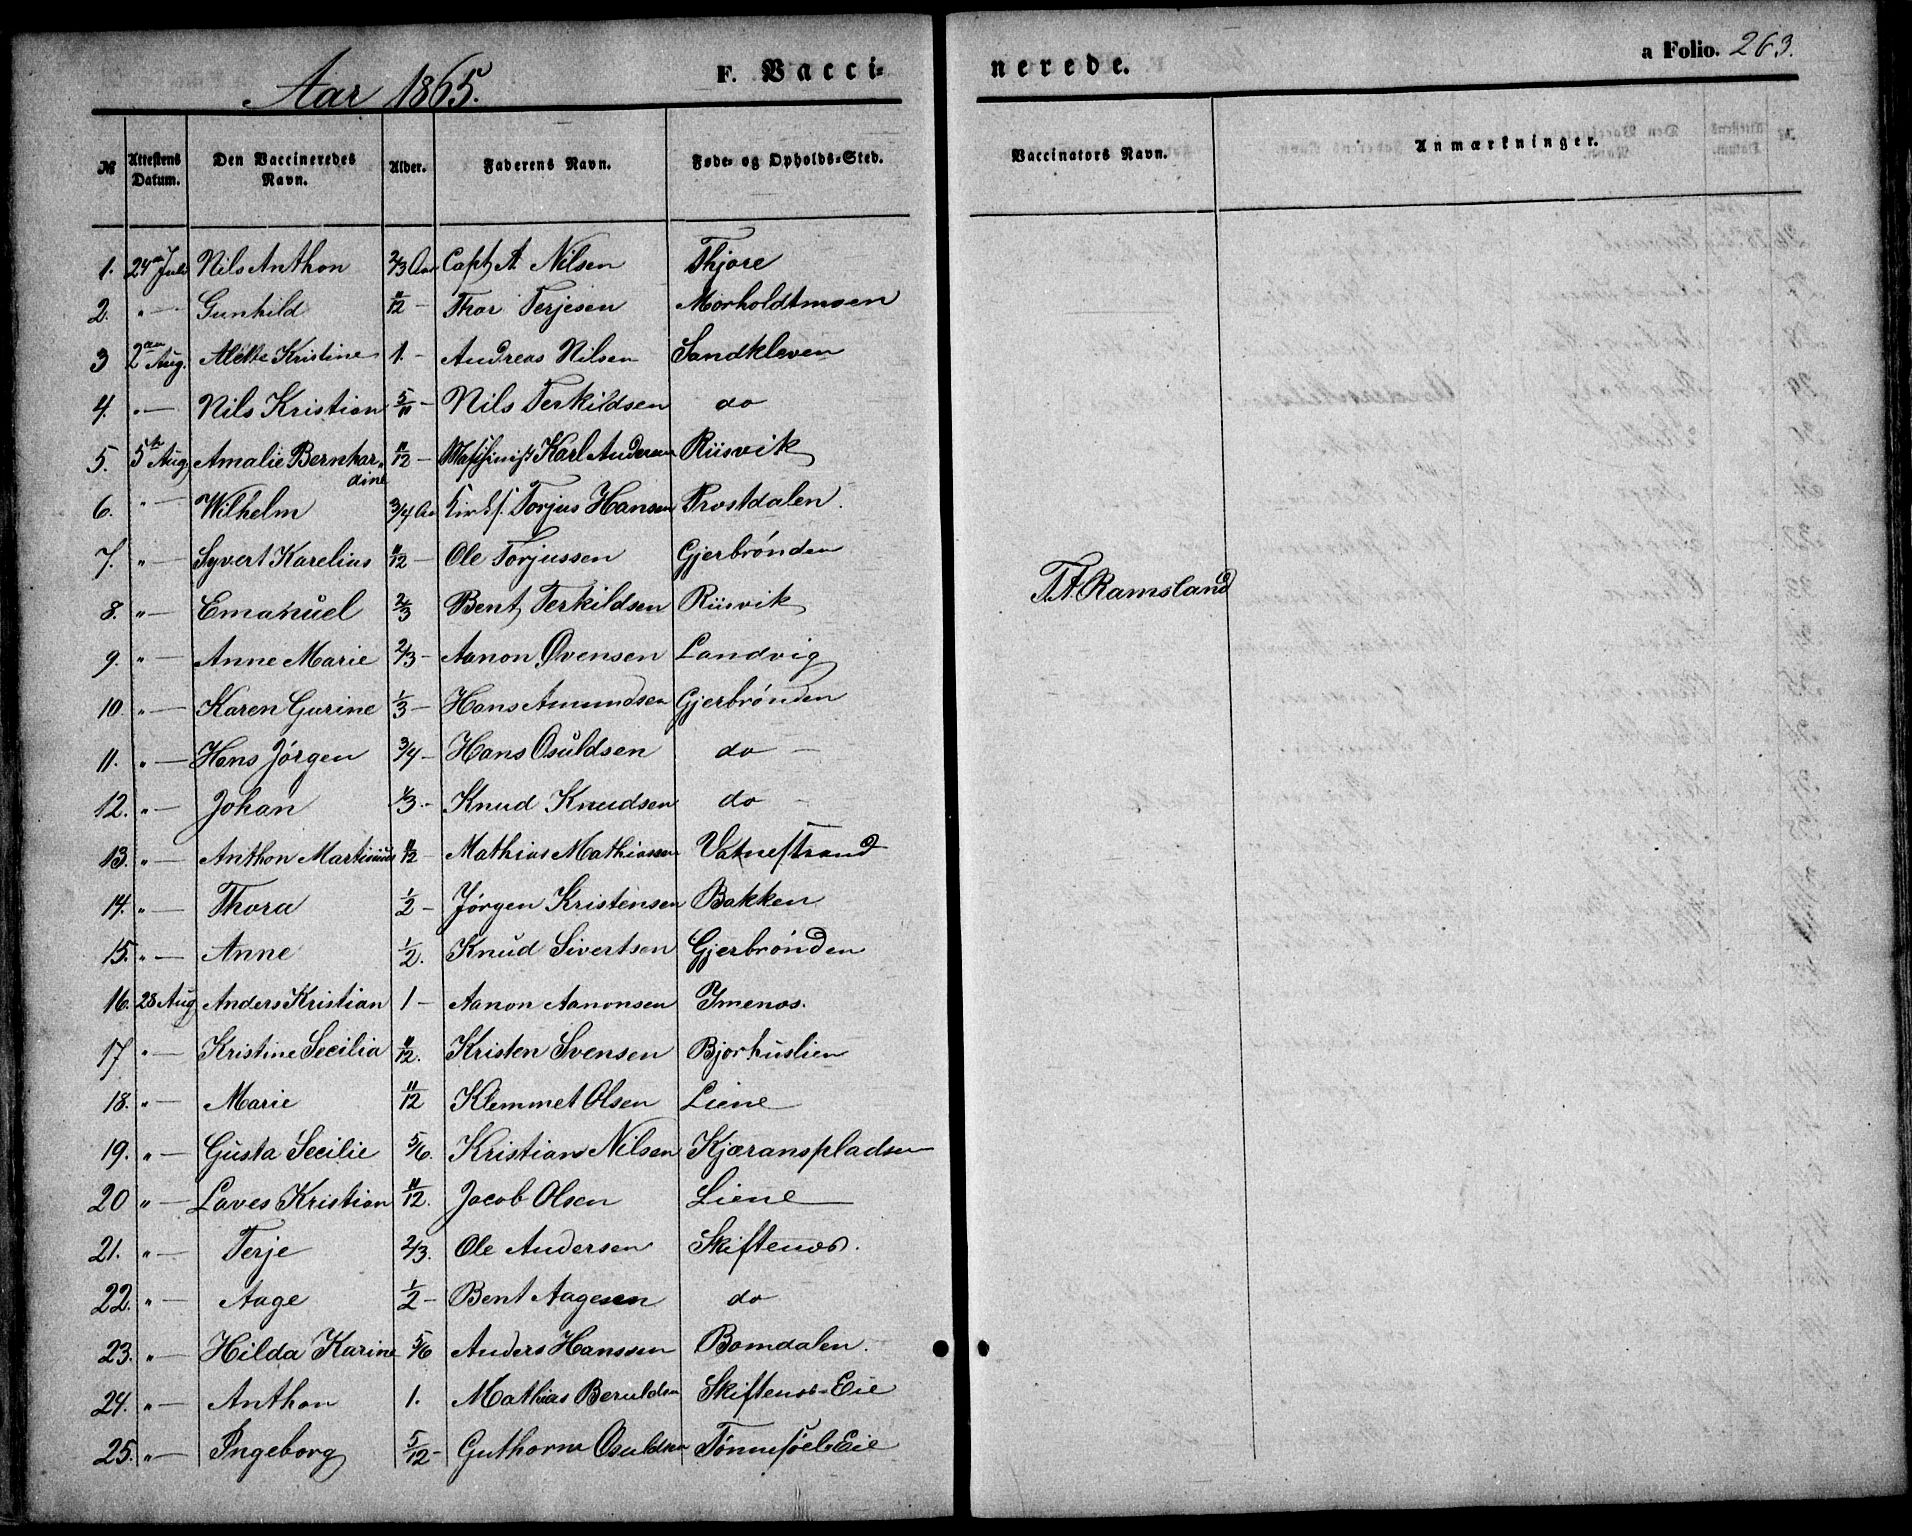 Aar 1865. F. Vacci- nerede. a Folio. 263.
№ Attestens Datum. Den Vaccineredes Navn. Alder. Faderens Navn. Føde- og Opholds-Sted. Vaccinators Navn. Anmærkninger.
1. 24de Juli Nils Anthon 2/3 Aar Capt A Nilsen Thjore
2. " — Gunhild 11/12 — Thor Terjesen Morholdtmoen
3 2den Aug. Alette Kristine 1. — Andreas Nilsen Sandkleven
4. " — Nils Kristian 5/11 — Nils Terkildsen do
5. 5te Aug Amalie Bernhar-dine 11/12 — Karl Andersen Riisvik
6. " — Wilhelm 3/4 Aar Torjus Hansen Prostdalen.
7. " — Syvert Karelius 11/12 — Ole Torjussen Gjerbrønden
8. " — Emanuel 2/3 Bent Terkildsen Riisvik
9. " — Anne Marie 2/3 — Aanon Ovensen Landvig
10. " — Karen Gurine 1/3 — Hans Amundsen Gjerbrønden
11. " — Hans Jørgen 3/4 — Hans Osuldsen do —
12. " — Johan 1/3. — Knud Knudsen do —
13. " — Anthon Martinius 11/12 — Mathias Mathiassen Vatnestrand
14. " — Thora 1/2 — Jørgen Kristensen Bakken
15. " — Anne 1/2. Knud Sivertsen Gjerbrønden
16. 28 Aug Anders Kristian 1 — Aanon Aanonsen Imenos.
17 " — Kristine Secilia 11/12. Kristen Svensen Bjorhuslien
18. " — Marie 11/12 Klemmet Olsen Liene
19. " — Gusta Secilie 5/6. Kristian Nilsen Kjæranspladsen
20 " — Laves Kristian 11/12. Jacob Olsen Liene
21. " — Terje 2/3. Ole Andersen Skiftenos.
22. " — Aage 1/2 — Bent Aagesen do
23. " — Hilda Karine 5/6 Anders Hanssen Bomdalen.
24. " — Anthon 1. Mathias Beruldsen Skiftenos-Eie
25. " — Ingeborg 5/12 — Guthorm Osuldsen Tønnesøel-Eie
T.A. Ramsland